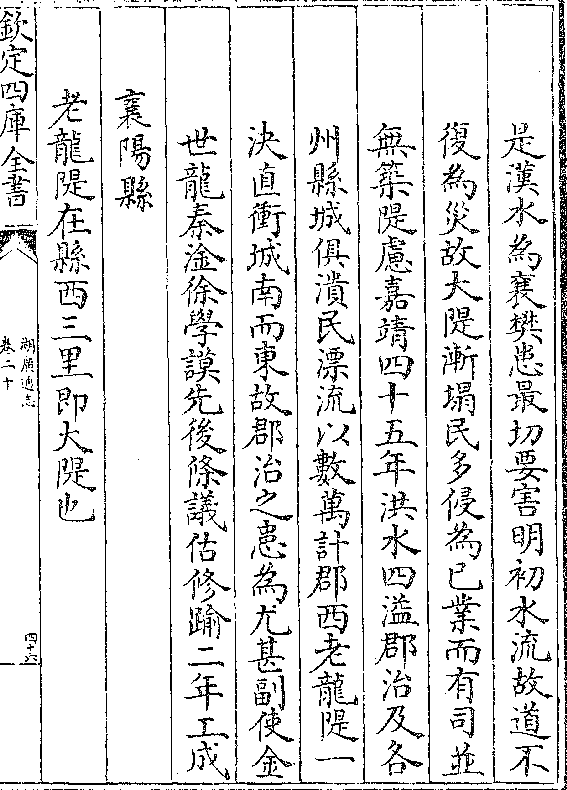 是漢水為襄樊患最切要害明初水流故道不
復為災故大隄漸塌民多侵為已業而有司並
無築隄慮嘉靖四十五年洪水四溢郡治及各
州縣城俱潰民漂流以數萬計郡西老龍隄一
決直衝城南而東故郡治之患為尤甚副使金
世龍秦淦徐學謨先後條議估修踰二年工成
襄陽縣
老龍隄在縣西三里即大隄也
欽定四庫全書
湖廣通志
卷二十
四十六